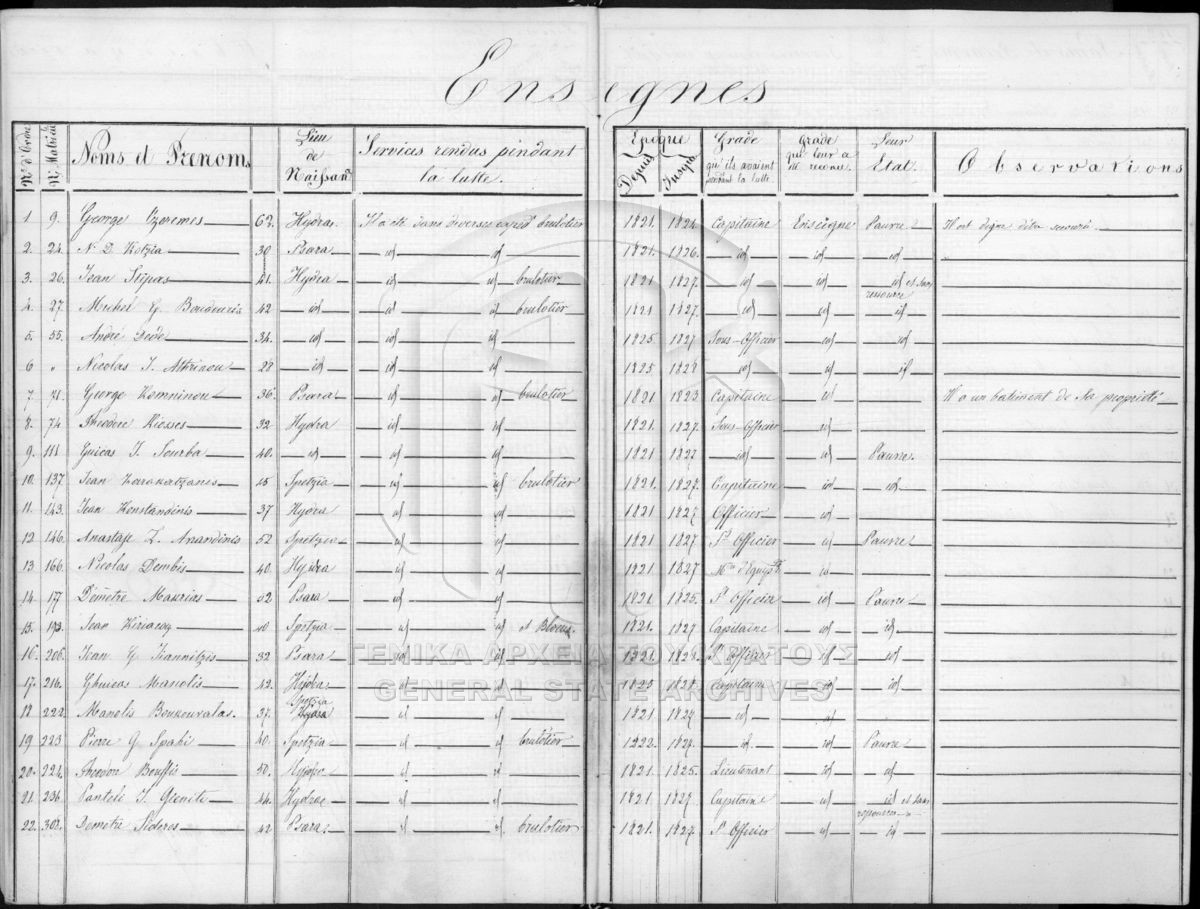 Enseignes
Nos. d'Ordre | No. Matricule | Noms et Prenoms | Lieu de Naissan. | Services rendus pindant la lutte. | Epoque Depuis | Jusque | Grade qu'ils avaient pendant la lutte. | Grade qui leur a été reconnu. | Leur Etat. | Observations
1. 9. George 62. Hydra. Il a été dans diverses exped. brulotier 1821. 1824 Capitaine Enseigne Pauvre. Il est digne d'être secouru.
2. 24. N. D. Kotzia 30 Psara id id 1821. 1826. id id id
3. 26. Jean 41. Hydra id id brulotier. 1821 1827. id id id et sans ressource
4. 27. Michel G. Boudouris 42 id id id brulotier 1821 1827. id id id
5. 55. André Dede 34. id id id 1825 1827 Sous-Officier id id
6 " Nicolas J. Athrinou 28 id id id 1825 1828 id id id
7. 71. George Komninou 36. Psara id id brulotier 1821 1823 Capitaine id Il a un batiment de sa propriété
8. 74 Theodore Kiosses 32 Hydra id id 1821. 1827. Sous-Officier id
9. 111 Guicas J. Sourba 40. id id id 1821 1827 id id Pauvre.
10. 137 Jean Karakatzanis 45 Spetzia id id brulotier 1821. 1827. Capitaine id id
11. 143. Jean Konstandinis 37 Hydra id id 1821 1827 Officier id
12 146. Anastase Z. Anandinis 52 Spetzia id id 1821 1827 Ss Officier id Pauvre
13. 166. Nicolas Dembis 40. Hydra id id 1821 1827 id
14. 177 Démetre Maurias 52 Psara id id 1821. 1825. Ss Officier id Pauvre
15. 193. Jean Kiriacou 40 Spetzia id id et Blocus. 1821. 1827 Capitaine id id
16. 206. Jean G. Giannitzis 32 Psara id id 1821. 1824. Ss Officier id id
17. 216. Ghuicas Manolis 42. Hydra id id 1825 1828. Capitaine id id
18 222. Manolis Boukouvalas. 37. Spetzia Hydra id id 1821 1827 id id
19. 223 Pierre G. Spahi 40. Spetzia id id brulotier 1822. 1827. id id Pauvre
20. 224. Bouffis 50. Hydra id id 1821 1825. Lieutenant id id
21. 234 Panteli J. 44. Hydra id id 1821 1827 Capitaine id id et sans ressources
22. 302. Demetre Sideros 42 Psara. id id brulotier 1821. 1827. Ss Officier id id
ΓΕΝΙΚΑ ΑΡΧΕΙΑ ΤΟΥ ΚΡΑΤΟΥΣ
GENERAL STATE ARCHIVES